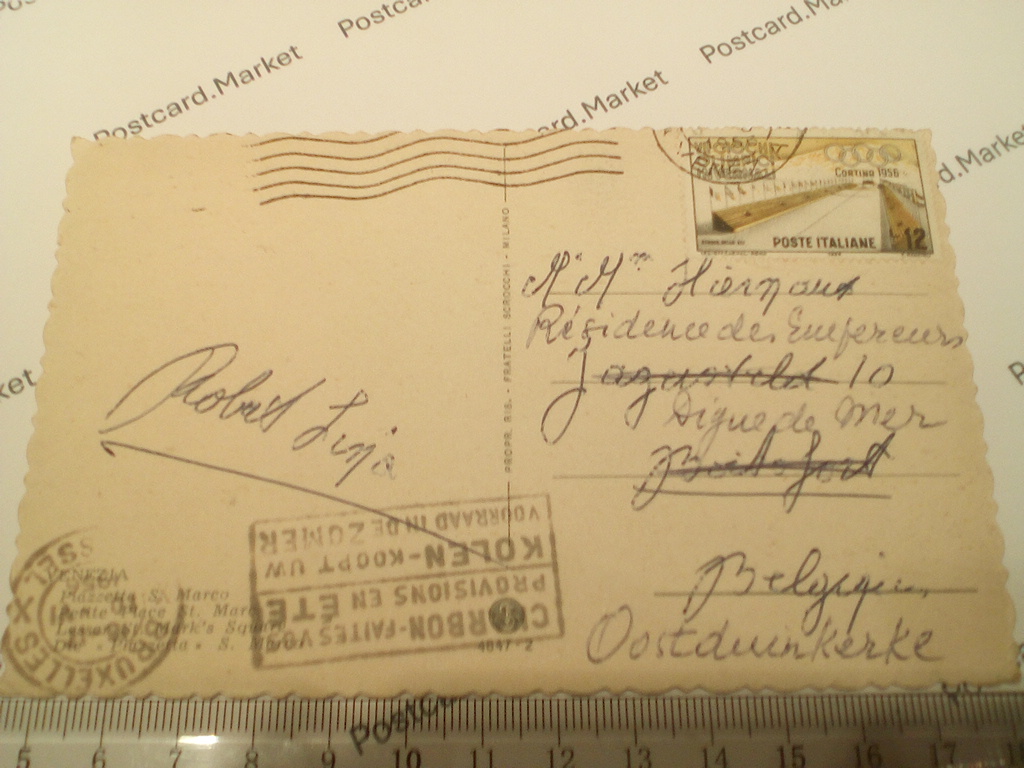 Postcard.Market
Postcard.Market
Postcard.Market
Postcard.Market
CORTINA 1956
POSTE ITALIANE 12
PROPR. RIS. - FRATELLI SCROCCHI - MILANO
Mr Mme
Résidence des Empereurs
10
Digue de Mer
Robert
België
Oostduinkerke
CHARBON-FAITES VOS
PROVISIONS EN ÉTÉ
KOLEN-KOOPT UW
VOORRAAD IN DE ZOMER
BRUXELLES X
BRUSSEL
VENEZIA
Piazzetta S. Marco
Petite Place St. Marc
Lesser St. Mark's Square
Die "Piazzetta" S. Marco
4047-2
5 6 7 8 9 10 11 12 13 14 15 16 17 18